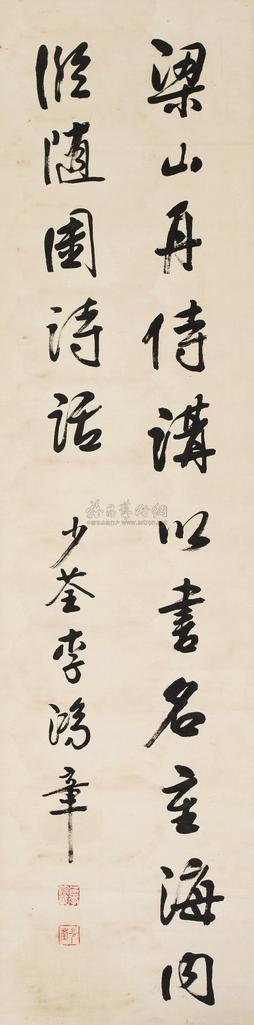 梁山舟侍講以書名重海内
仿隨園詩話
少荃李鴻章